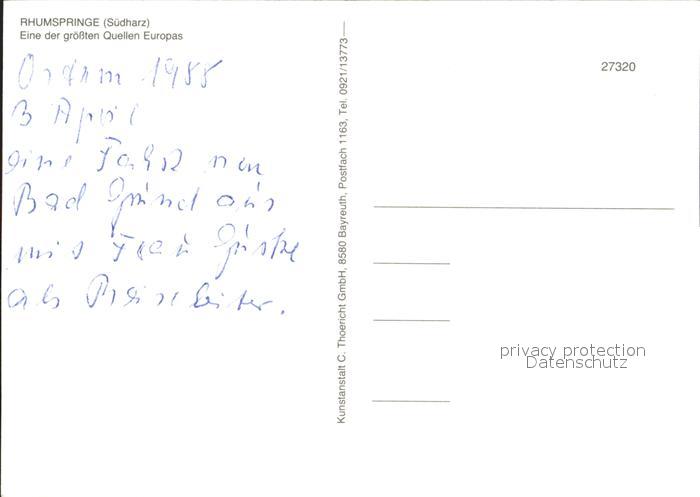 RHUMSPRINGE (Südharz)
Eine der größten Quellen Europas
Ostern 1988
3 April
eine Fahrt von
Bad Grund aus
mit Frau
als Reiseleiter.
Kunstanstalt C. Thoericht GmbH, 8580 Bayreuth, Postfach 1163, Tel. 0921/13773
27320
privacy protection
Datenschutz